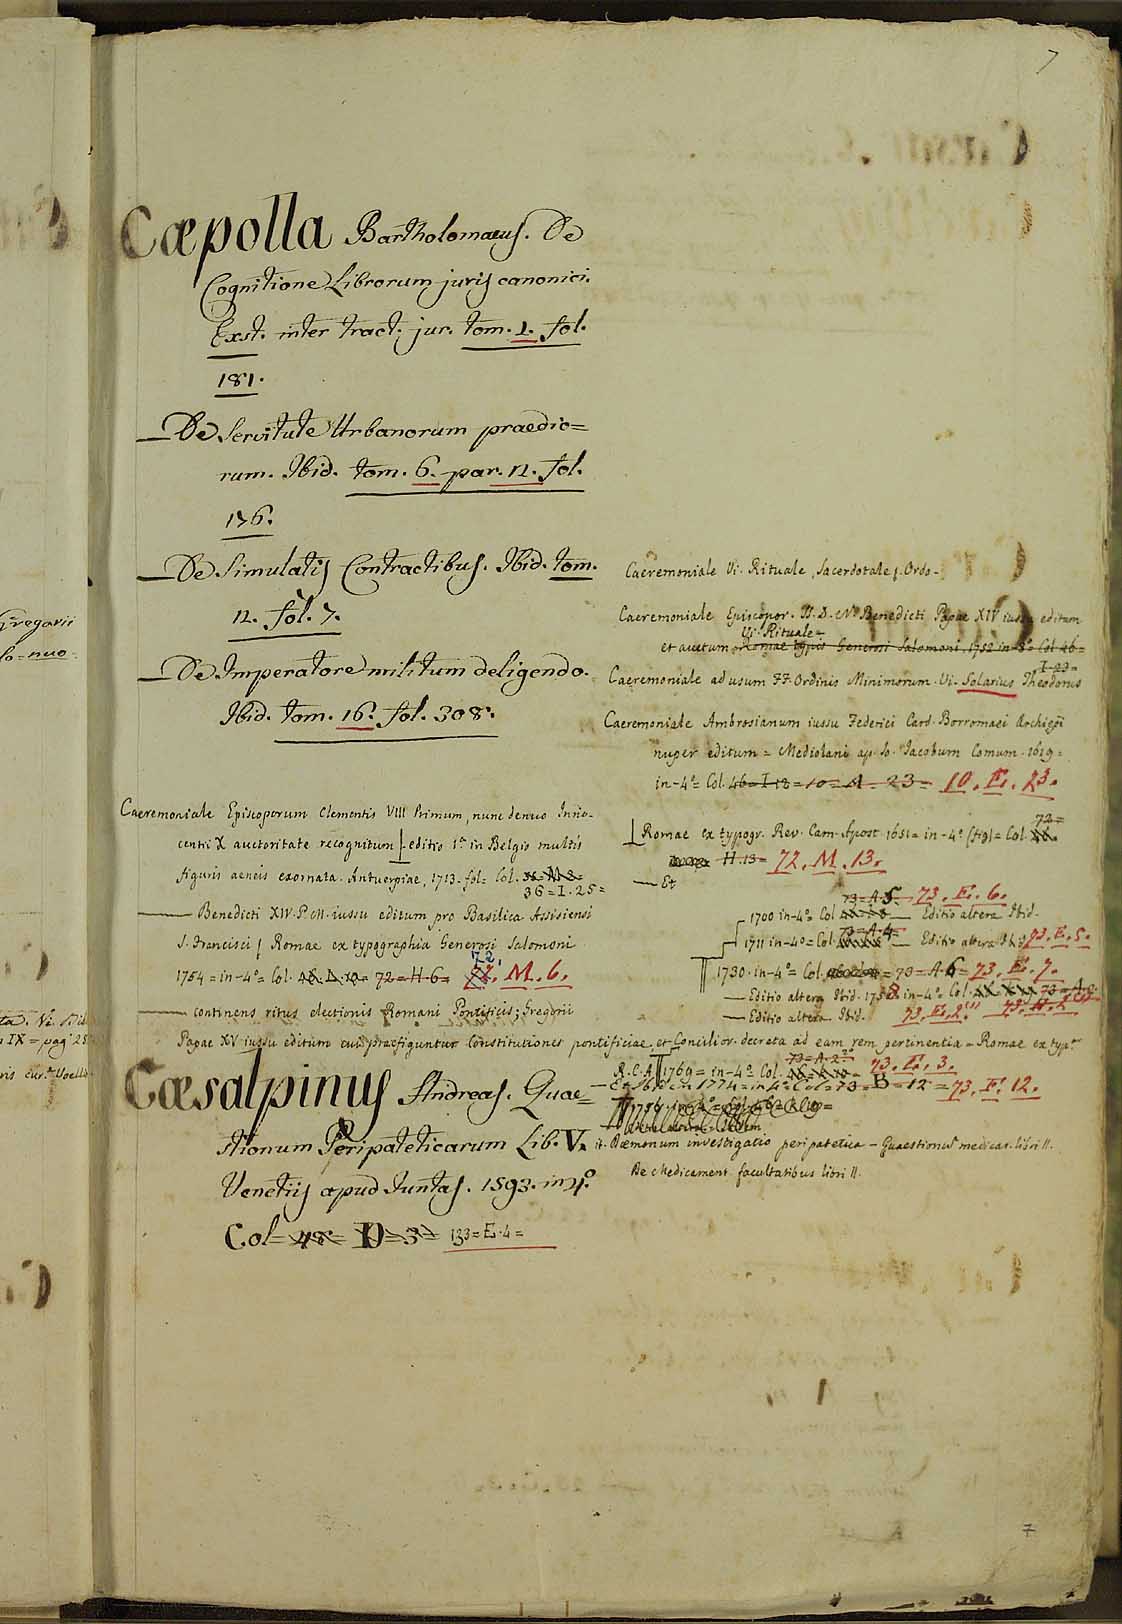 7
Cæpolla Bartholomaeus. De
Cognitione Librorum juris canonici.
Exst. inter tract. jur. tom. 1. fol.
181.
— De Servitute Urbanorum praedio=
rum. Ibid. tom. 6. par. 11. fol.
176.
— De Simulatis Contractibus. Ibid. tom.
11. fol. 7.
— De Imperatore militum deligendo.
Ibid. tom. 16. fol. 308.
Caeremoniale Episcoporum Clementis VIII Primum, nunc denuo Inno-
centii X auctoritate recognitum editio 1ª in Belgio multis
figuris aeneis exornata. Antuerpiae, 1713. fol= Col.
36=I.25=
—— Benedicti XIV. P.M. iussu editum pro Basilica Assisiensi
S. Francisci Romae ex typographia Generosi Salomoni
1754=in-4º= Col. 72=H.6= 72. M. 6.
—— continens ritus electionis Romani Pontificis; Gregorii
Papae XV iussu editum cui praefiguntur Constitutiones pontificiae et Concilior. decreta ad eam rem pertinentia = Romae ex typª
Cæsalpinus Andreas. Quae=
stionum Peripateticarum Lib. V.
Venetiis apud Juntas. 1593. in 4º
Col= 48= D=3= 133=E.4=
Caeremoniale Vi. Rituale, Sacerdotale, Ordo.
Caeremoniale Episcopor. Benedicti Papae XIV iussu editum
Vi. Rituale=
et auctum Romae typis Generosi Salomoni. 1752 in-8º Col 46=
Caeremoniale ad usum FF. Ordinis Minimorum. Vi. Solarius Theodorus
Caeremoniale Ambrosianum iussu Federici Card. Borromaei Archiepi
nuper editum = Mediolani ap. Io. Jacobum Comum. 1619=
in-4º Col. 46=I.18=10=M.23= 10. E. 23.
Romae ex typogr. Rev. Cam. Apost 1651= in-4º Col. 72=
H.13= 72. M. 13.
— Et
73=A.5. 73. E. 6.
1700 in-4º Col — Editio altera Ibid.
73=A.4=
1711 in-4º= Col. — Editio altera Ibid 73. E. 5.
1730. in-4º= Col. = 73=A.6= 73. E. 7.
— Editio altera Ibid. in-4º Col.
— Editio altera Ibid. 73. E. 2.
73=A.2 73. E. 3.
R.C.A. 1769= in-4º Col.
— Et Ibid in 1774=in 4º Col= 73=B=12= 73. E. 12.
it. Dæmonum investigatio peripatetica — Quaestionũ medicar. libri II.
De Medicament. facultatibus libri II.
7
Gregorii